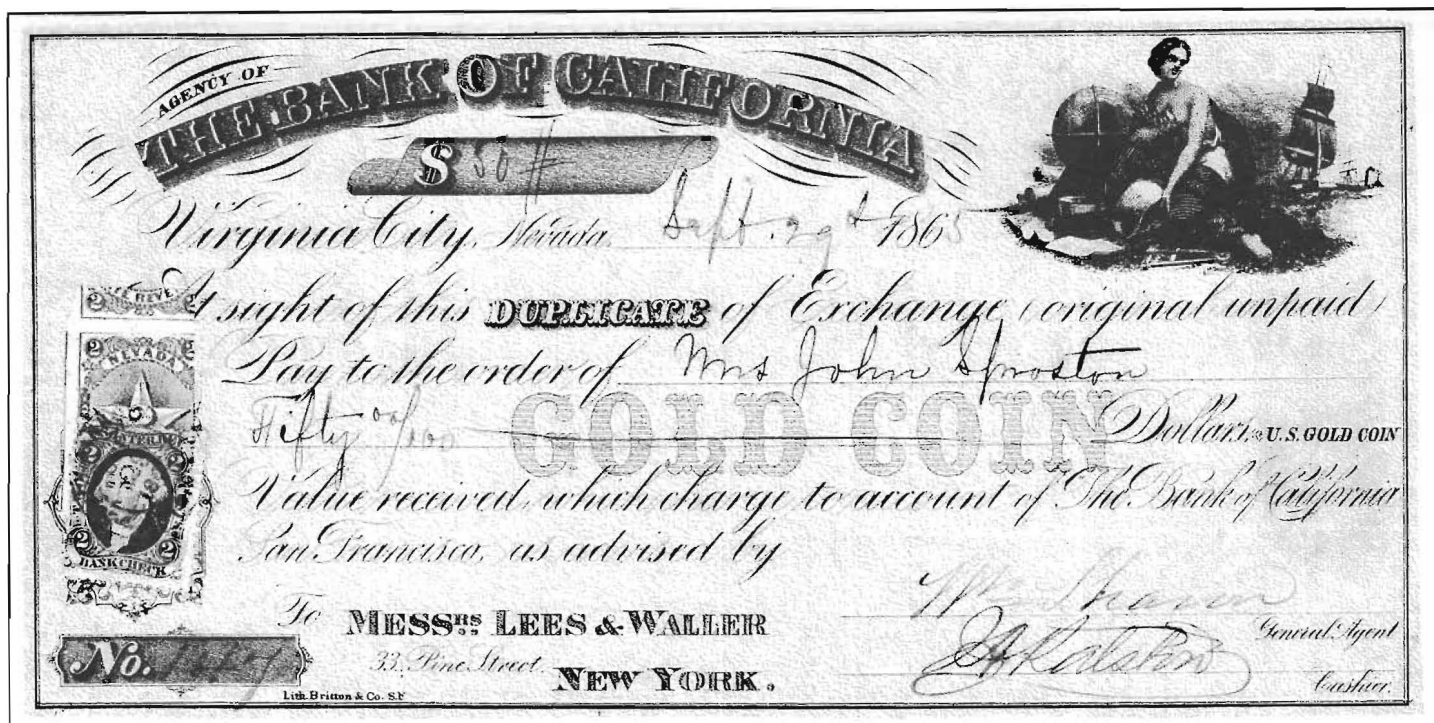 AGENCY OF
THE BANK OF CALIFORNIA
$ 50
Virginia City, Nevada, Sept. 29 1865
At sight of this DUPLICATE of Exchange (original unpaid)
Pay to the order of Mrs John Sproston
Fifty 00/100 GOLD COIN Dollars, U.S. GOLD COIN
Value received, which charge to account of The Bank of California
San Francisco, as advised by
To MESSRS LEES & WALLER
33, Pine Street.
NEW YORK.
Wm Sharon
General Agent
Ralston
Cashier.
No.
Lith. Britton & Co. S.F
2 2
NEVADA
INTER
2 2
BANK CHECK